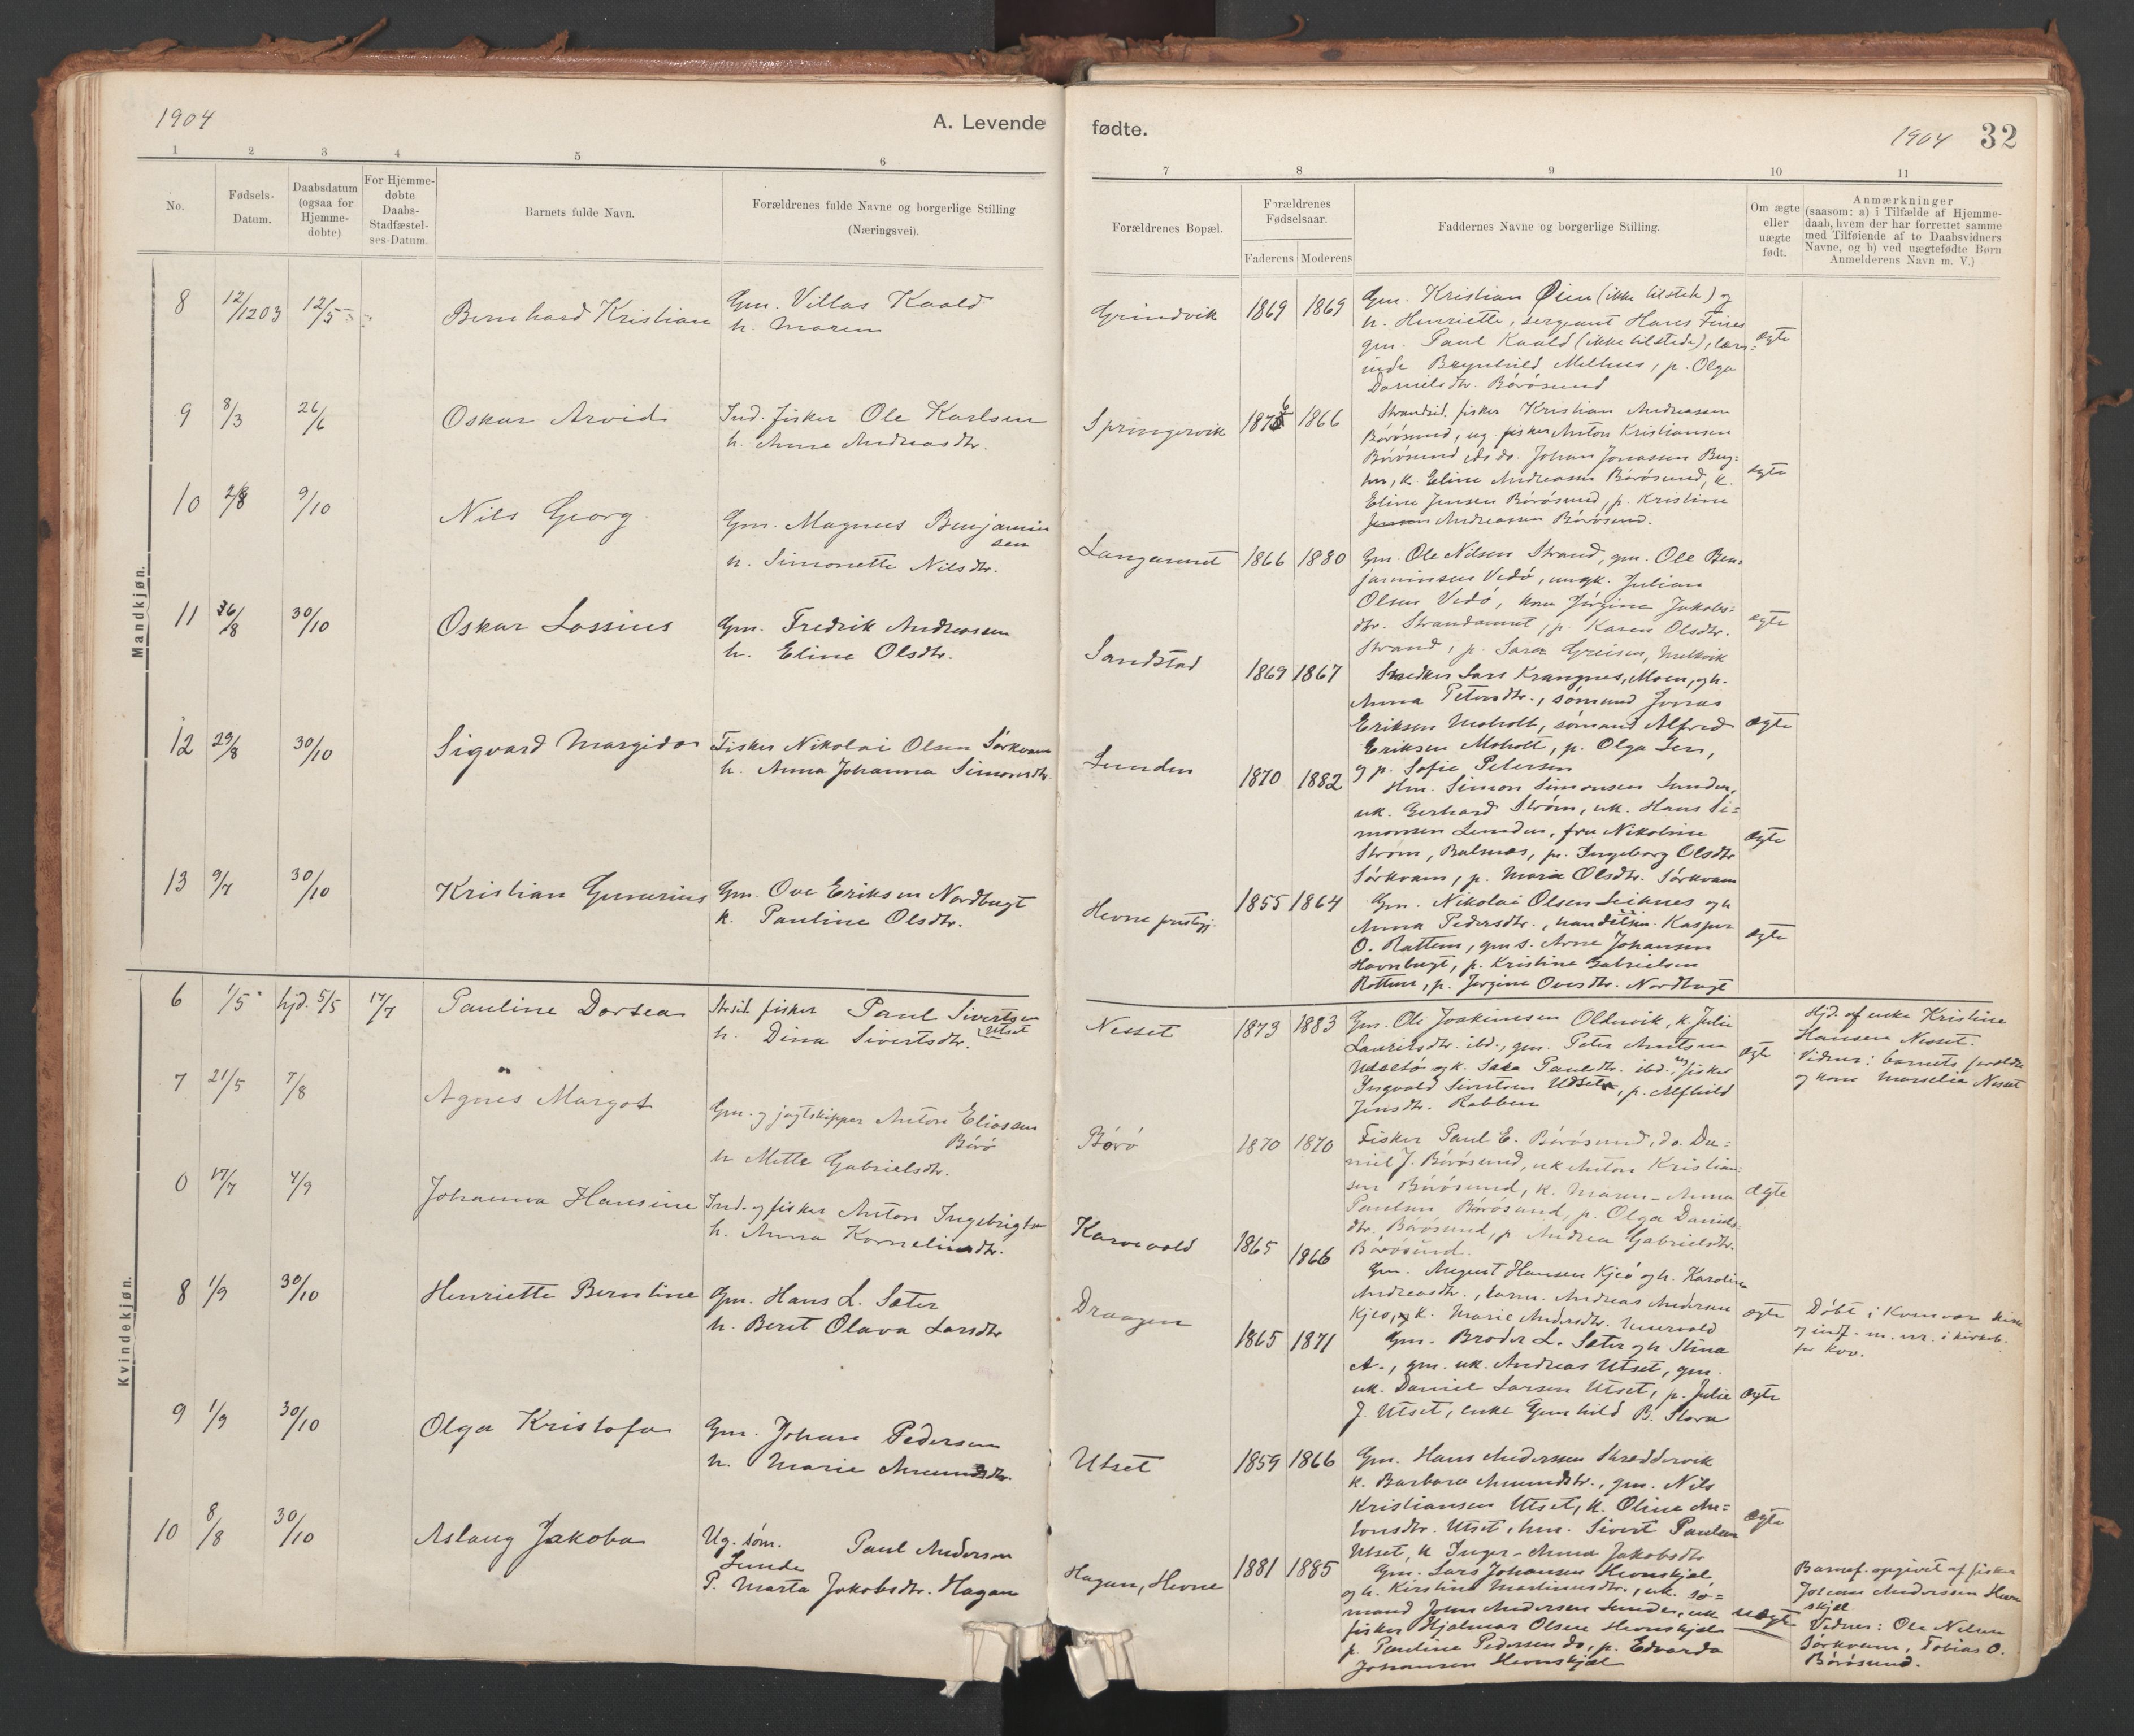 1904
A. Levende fødte.
1904 32
1 2 3 4 5 6 7 8 9 10 11
No.
Fødsels-
Datum.
Daabsdatum
(ogsaa for
Hjemme-
døbte)
For Hjemme-
døbte
Daabs-
Stadfæstel-
ses-Datum.
Barnets fulde Navn.
Forældrenes fulde Navne og borgerlige Stilling
(Næringsvei).
Forældrenes Bopæl.
Forældrenes
Fødselsaar.
Faderens Moderens
Faddernes Navne og borgerlige Stilling.
Om ægte
eller
uægte
født.
Anmærkninger
(saasom: a) i Tilfælde af Hjemme-
daab, hvem der har forrettet samme
med Tilføiende af to Daabsvidners
Navne, og b) ved uægtefødte Børn
Anmelderens Navn m. V.)
Mandkjøn.
8 12/12 03 12/5 Bernhard Kristian
Gm. Villas Kaald
h. Maren
Grindvik 1869 1869
Gm. Kristian Øien (ikke tilstede) og
h. Henriette, sergeant Hans Fines
gm. Paul Kaald (ikke tilstede), lærer-
inde Brynhild Melhus, p. Olga
Danielsdtr. Börösund
ægte
9 8/3 26/6 Oskar Arvid
Ind. fisker Ole Karlsen
h. Anne Andreasdtr.
Springervik 1876 1866
Strandsid. fisker Kristian Andreassen
Börösund, ug. fisker Anton Kristiansen
Börösund, ds do. Johan Jonassen
k. Eline Andreassen Börösund, k.
Eline Jensen Börösund, p. Kristine
Andreassen Börösund.
ægte
10 2/8 9/10 Nils Georg
Gm. Magnus Benjamin
sen
h. Simonette Nilsdtr.
Langannet 1866 1880
Gm. Ole Nilsen Strand, gm. Ole Ben-
jaminsen Vedö, ungk. Julian
Olsen Vedö, kone Jörgine Jakobs-
dtr. Strandannet, p. Karen Olsdtr.
Strand, p. Sara Greisen, Melkvik
ægte
11 26/8 30/10 Oskar Lossius
Gm. Fredrik Andreassen
h. Eline Olsdtr.
Sandstad 1869 1867
Snedker Lars Krangnes, Moen, og h.
Anna Petersdtr., sömand Jonas
Eriksen Moholt, sömand Alfred
Eriksen Moholt, p. Olga
og p. Sofie Petersen
ægte
12 29/8 30/10 Sigvard Margido
Fisker Nikolai Olsen Sörkvam
h. Anna Johanna Simonsdtr.
Lunden 1870 1882
Hm. Simon Simonsen Lunden,
uk. Gerhard Ström, uk. Hans Si-
monsen Lunden, fru Nikoline
Ström, Balsnes, p. Ingeborg Olsdtr
Sörkvam, p. Maria Olsdtr. Sörkvam
ægte
13 9/7 30/10 Kristian Gunerius
Gm. Ove Eriksen Nordbugt
k. Pauline Olsdtr.
Hevne prestegj. 1855 1864
Gm. Nikolai Olsen Leiknes og h
Anna Pedersdtr., Kasper
O. Rottem, gm s. Arne Johansen
Havnbugt, p. Kristine Gabrielsen
Rottem, p. Jørgine Ovesdtr. Nordbugt
ægte
Kvindekjøn.
6 1/5 hjd. 5/5 17/7 Pauline Dortea
Strsid. fisker Paul Sivertsen
Utset
h. Dina Sivertsdtr.
Nesset 1873 1883
Gm. Ole Joakimsen Oldervik, k. Julie
Lauritsdtr. ibd., gm. Peter Antsen
Udsetör og k. Sara Paulsdtr. ibd., ug. fisker
Ingvald Sivertsen Udset, p. Alfhild
Jensdtr. Rabben
ægte
Hjd. af enke Kristine
Hansen Nesset.
Vidner: barnets forældre
og kone Marselia Nesset
7 21/5 7/8 Agnes Margot
Gm. og jagtskipper Anton Eliassen
Börö
h Mette Gabrielsdtr.
Börö 1870 1870
Fisker Paul E. Börösund, do. Da-
niel J. Börösund, uk Anton Kristian-
sen Börösund, k. Maren-Anna
Paulsen Börösund, p. Olga Daniels-
dtr. Börösund, p Andrea Gabrielsdtr.
Börösund.
ægte
0 17/7 4/9 Johanna Hansine
Ind. og fisker Anton Ingebrigtsen
h. Anna Korneliusdtr.
Karvevold 1865 1866
Gm. August Hansen Kjeö og h. Karoline
Andreasdtr., Andreas Andersen
Kjeö, og k. Marie Andersdtr.
ægte
Døbt i Kvenvær kirke
og indf. m. nr. i kirkeb.
for Kvv.
8 1/9 30/10 Henriette Berntine
Gm. Hans L. Sæter
h. Beret Olava Larsdtr
Draagen 1865 1871
Gm. Broder L. Sæter og h Stina
A., gm. uk. Andreas Utset, gm.
uk. Daniel Larsen Utset, p. Julie
J. Utset, enke Gunhild B. Slora
ægte
9 1/9 30/10 Olga Kristofa
Gm. Johan Pedersen
h. Marie Amundsdtr.
Utset 1859 1866
Gm. Hans Andersen Skreddervik
k. Barbara Amundsdtr., gm. Nils
Kristiansen Utset, k. Oline An-
tonsdtr. Utset, hm. Sivert Paulsen
Utset, k Inger-Anna Jakobsdtr
ægte
10 8/8 30/10 Aslaug Jakoba
Ug. söm. Paul Andersen
Lunde
P. Marta Jakobsdtr. Hagan
Hagan, Hevne 1881 1885
Gm. Lars Johansen Hevnskjæl
og h. Kirstine Martinusdtr., uk. sö-
mand John Andersen Lunde, uk
fisker Hjalmar Olsen Hevnskjæl
p. Pauline Pedersen do, p. Edvarda
Johansen Hevnskjæl
uægte
Barnef. opgivet af fisker
Johan Anderssen Hevn
skjel
Vidner: Ole Nilsen
Sörkvam, Tobias O.
Börösund.